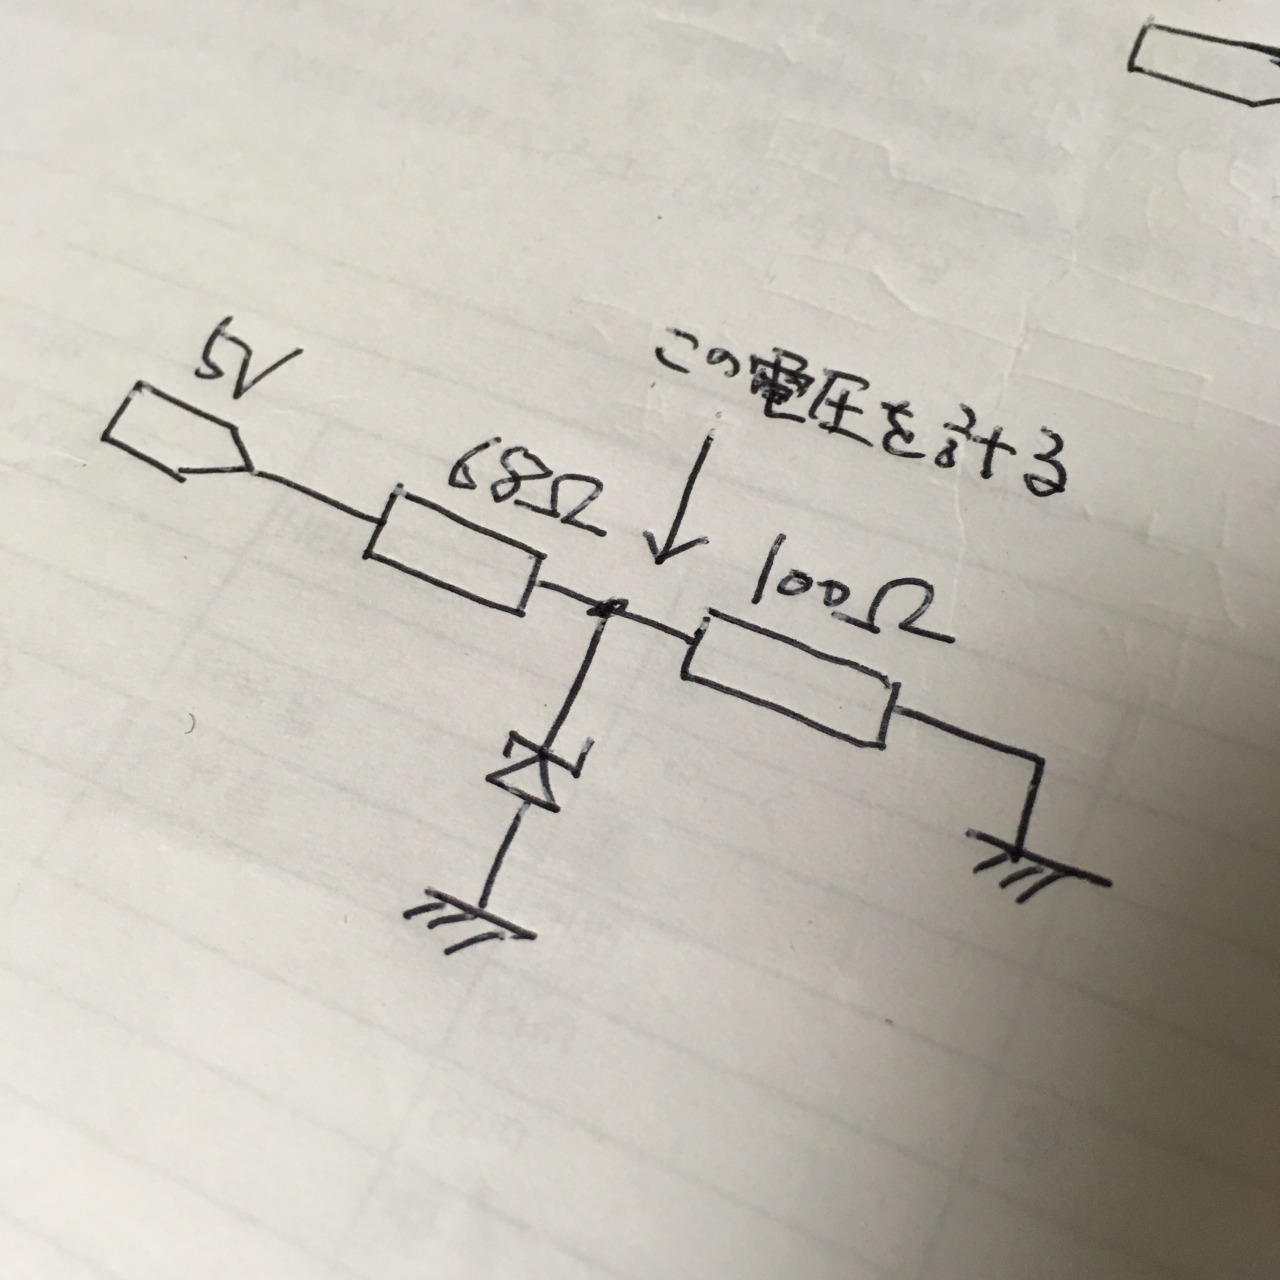 5V
68Ω
この電圧を計る
100Ω